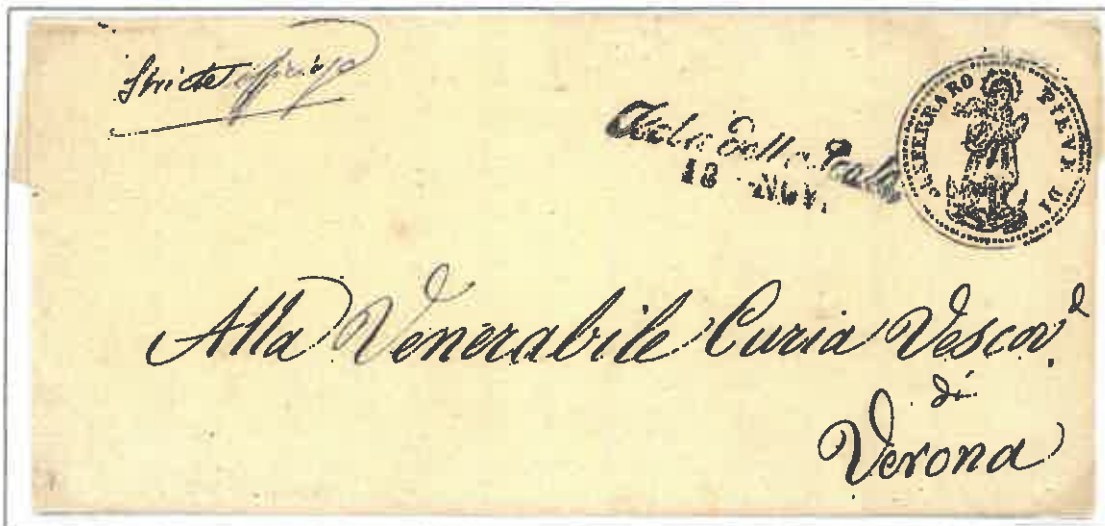 Stricte officioso
Isola della Scala
18 NOV.
PIEVE DI
Alla Venerabile Curia Vescov.e
di
Verona